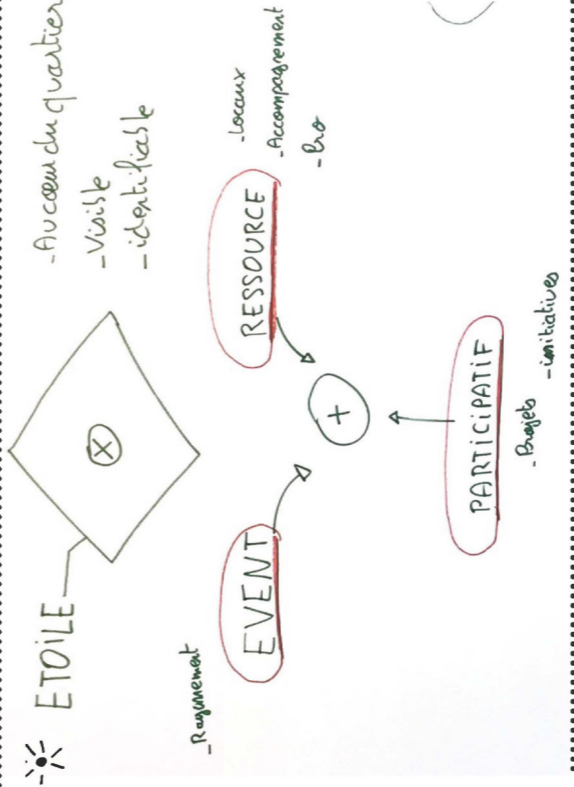 ETOILE
X
- Au cœur du quartier
- Visible
- identifiable
- Rayonnement
EVENT
RESSOURCE
- Locaux
- Accompagnement
- Pro
+
PARTICIPATIF
- Projets
- initiatives